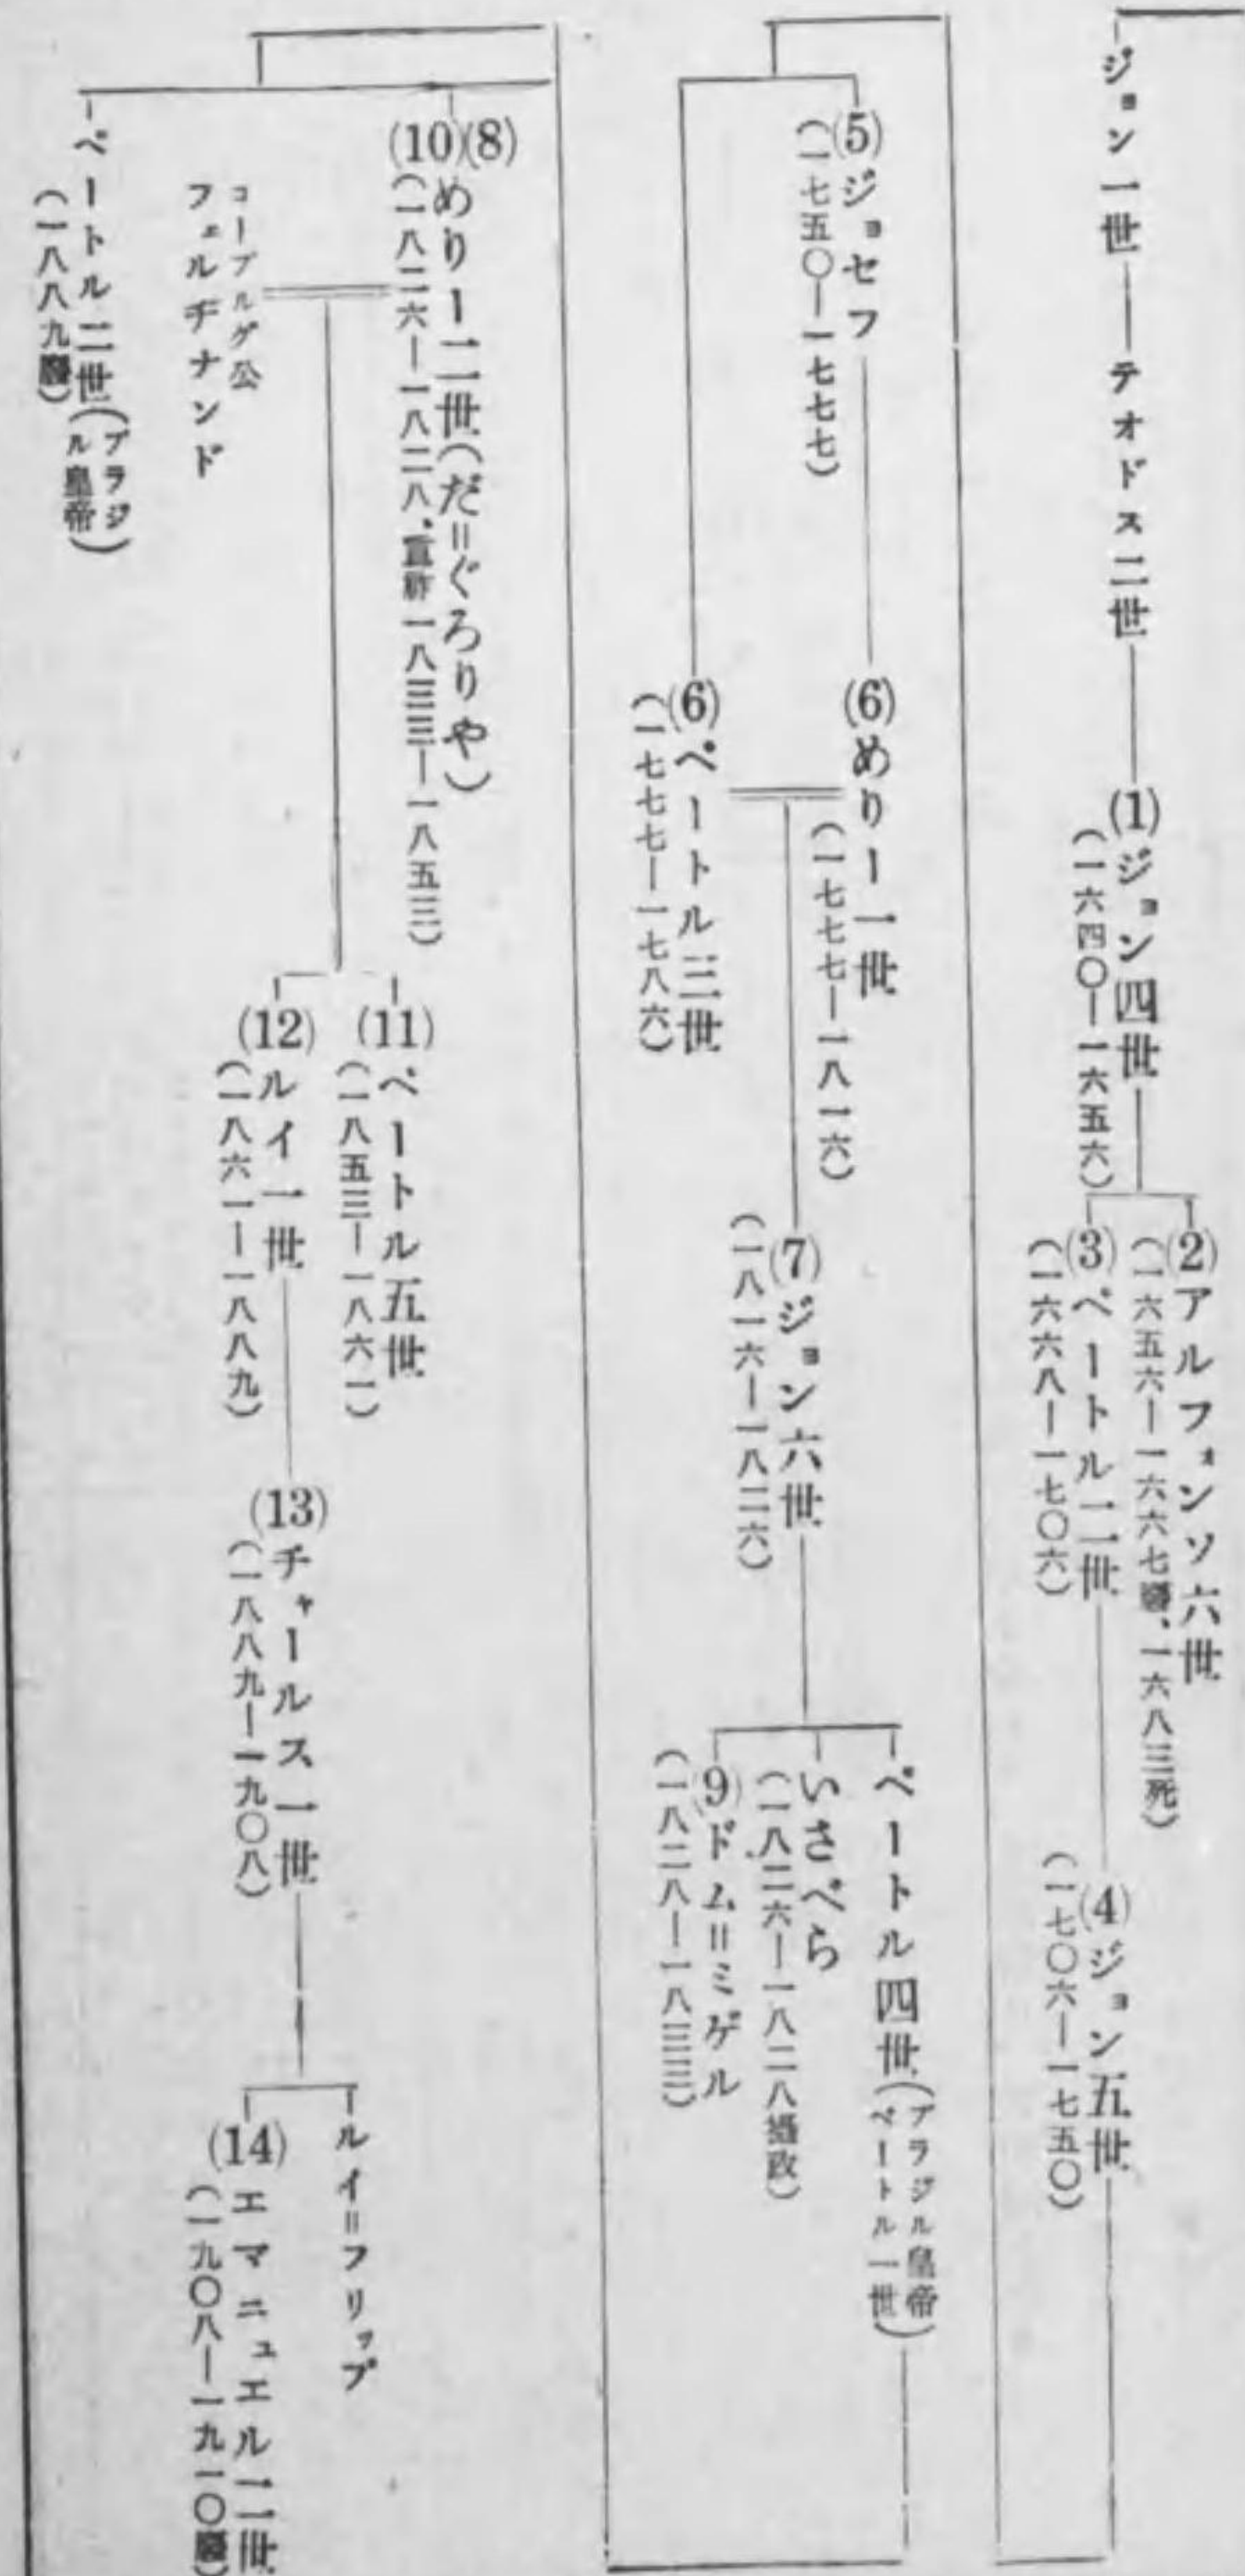 ジョン一世
テオドス二世
(1)ジョン四世
(一六四〇―一六五六)
(2)アルフォンソ六世
(一六五六―一六六七廢、一六八三死)
(3)ペートル二世
(一六六八―一七〇六)
(4)ジョン五世
(一七〇六―一七五〇)
(5)ジョセフ
(一七五〇―一七七七)
(6)めりー一世
(一七七七―一八一六)
(6)ペートル三世
(一七七七―一七八六)
(7)ジョン六世
(一八一六―一八二六)
ペートル四世(ブラジル皇帝
ペートル一世)
いさべら
(一八二六―一八二八攝政)
(9)ドム=ミゲル
(一八二八―一八三三)
(8)
(10)めりー二世(だ=ぐろりや)
(一八二六―一八二八、重祚一八三三―一八五三)
コーブルゲ公
フェルヂナンド
ペートル二世(ブラジ
ル皇帝)
(一八八九廢)
(11)ペートル五世
(一八五三―一八六一)
(12)ルイ一世
(一八六一―一八八九)
(13)チャールス一世
(一八八九―一九〇八)
ルイ=フリップ
(14)エマニュエル二世
(一九〇八―一九一〇廢)